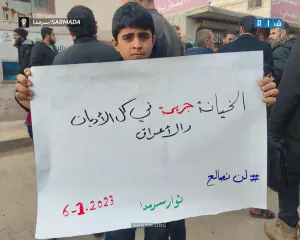 سرمدا/SARMADA
الخيانة جريمة في كل الأديان
والأعراف
# لن نصالح
ثوار سرمدا
6-1-2023